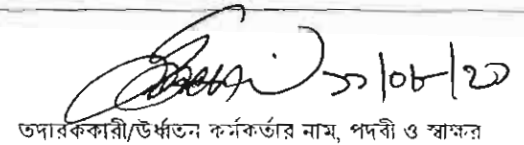 ১১/০৮/২০
তদারককারী/উর্ধ্বতন কর্মকর্তার নাম, পদবী ও স্বাক্ষর